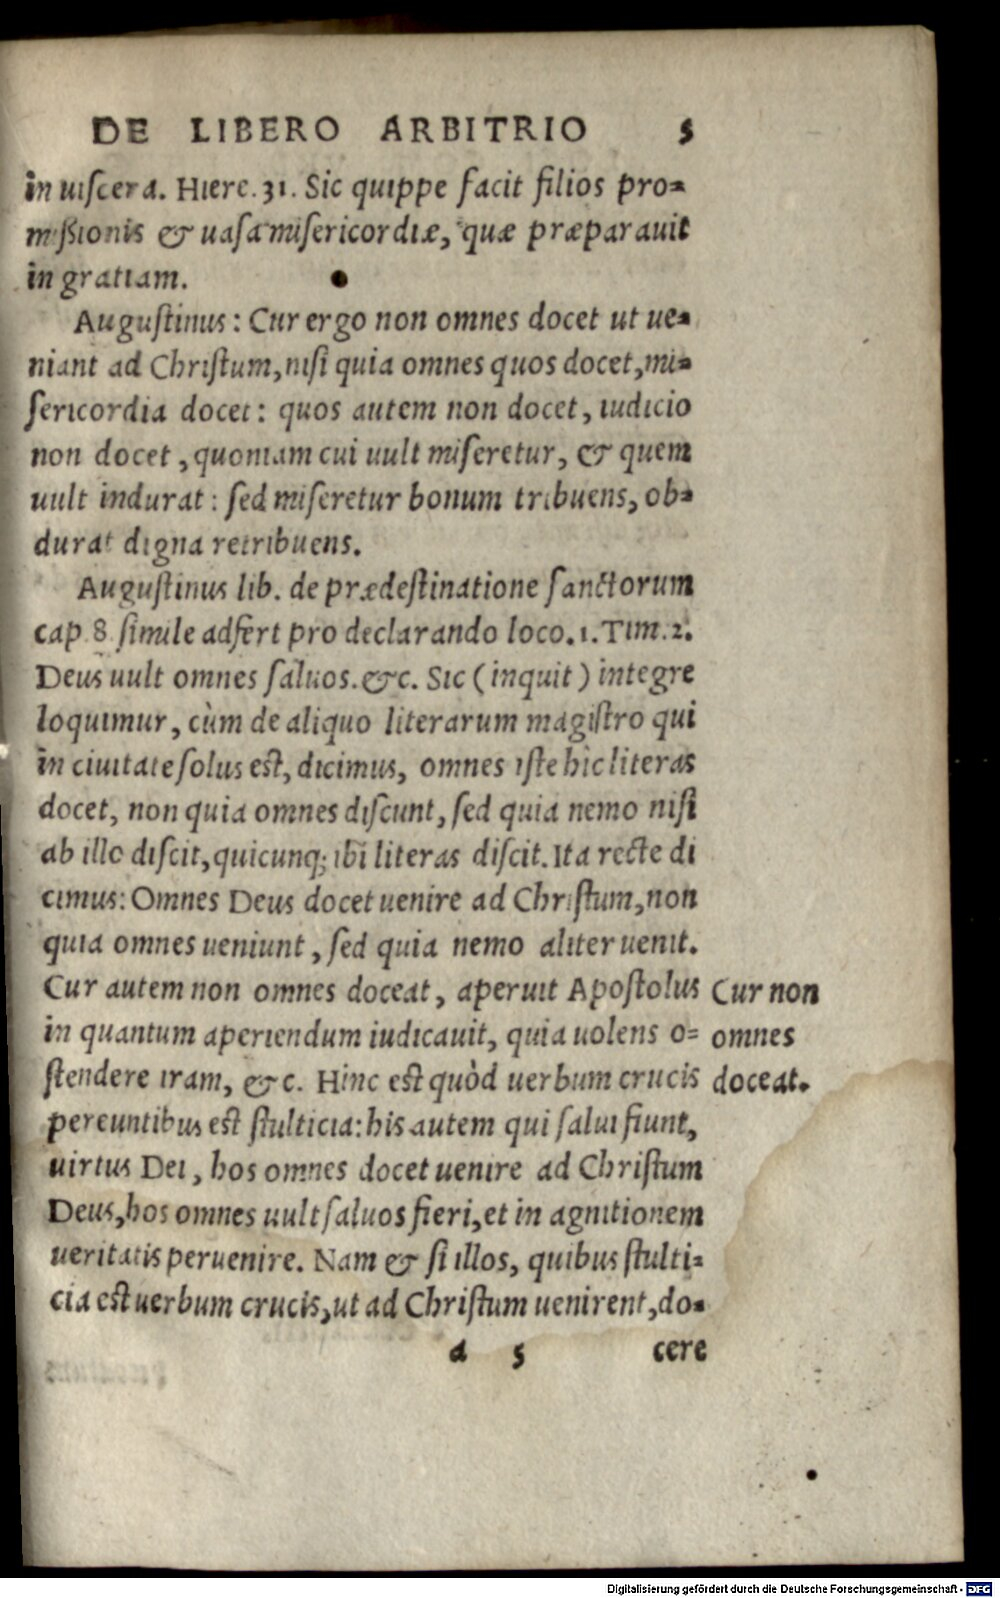 DE LIBERO ARBITRIO 5
in uiscera. Hiere. 31. Sic quippe facit filios pro=
mißionis & uasa misericordiæ, quæ præparauit
in gratiam.
Augustinus: Cur ergo non omnes docet ut ue=
niant ad Christum, nisi quia omnes quos docet, mi=
sericordia docet: quos autem non docet, iudicio
non docet, quoniam cui uult miseretur, & quem
uult indurat: sed miseretur bonum tribuens, ob=
durat digna retribuens.
Augustinus lib. de prædestinatione sanctorum
cap 8 simile adfert pro declarando loco. 1. Tim. 2.
Deus uult omnes saluos. &c. Sic (inquit) integre
loquimur, cùm de aliquo literarum magistro qui
in ciuitate solus est, dicimus, omnes iste hic literas
docet, non quia omnes discunt, sed quia nemo nisi
ab illo discit, quicunq; ibi literas discit. Ita recte di
cimus: Omnes Deus docet uenire ad Christum, non
quia omnes ueniunt, sed quia nemo aliter uenit.
Cur autem non omnes doceat, aperuit Apostolus
in quantum aperiendum iudicauit, quia uolens o=
stendere iram, &c. Hinc est quòd uerbum crucis
pereuntibus est stulticia: his autem qui salui fiunt,
uirtus Dei, hos omnes docet uenire ad Christum
Deus, hos omnes uult saluos fieri, et in agnitionem
ueritatis peruenire. Nam & si illos, quibus stulti=
cia est uerbum crucis, ut ad Christum uenirent, do=
a 5 cere
Cur non
omnes
doceat.
Digitalisierung gefördert durch die Deutsche Forschungsgemeinschaft - DFG